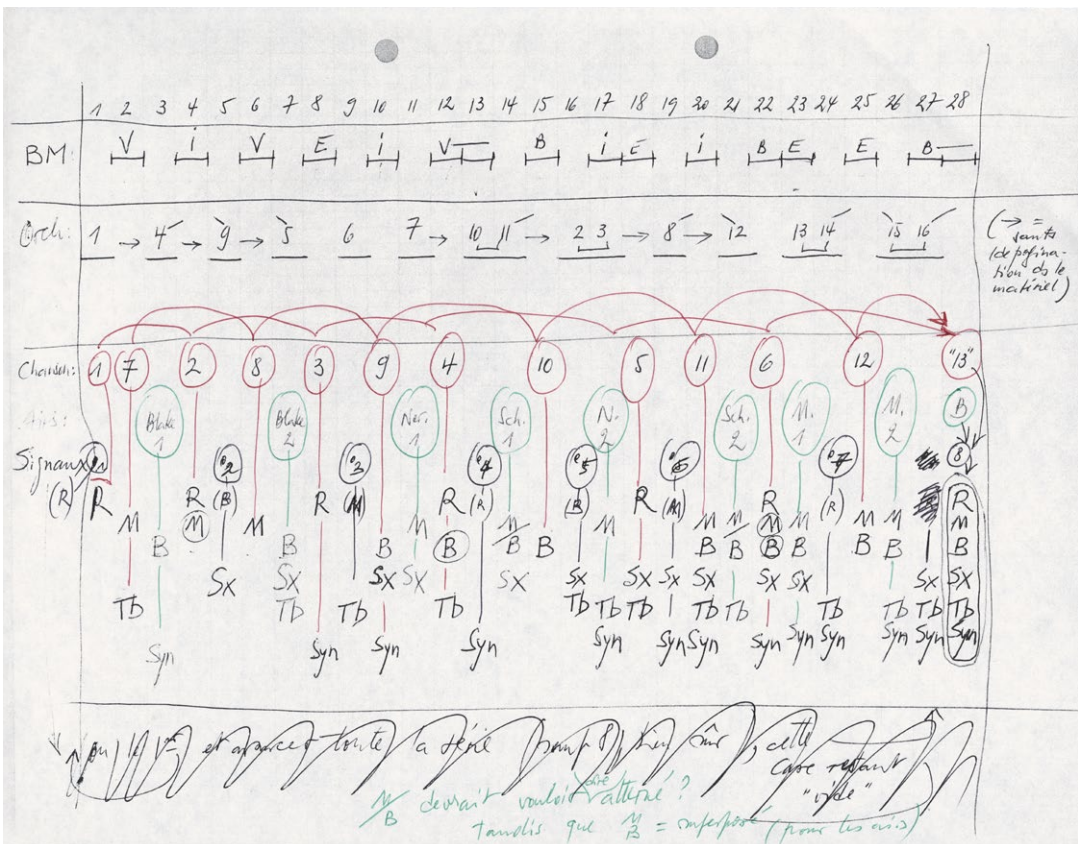 1 2 3 4 5 6 7 8 9 10 11 12 13 14 15 16 17 18 19 20 21 22 23 24 25 26 27 28
BM: V i V E i V B i E i B E E B
Orch: 1 → 4 → 9 → 5 6 7 → 10 11 → 2 3 → 8 → 12 13 14 15 16
(→ =
de pagina-
tion ds le
matériel)
1 7 2 8 3 9 4 10 5 11 6 12 "13"
Blake 1 Blake 2 Ner. 1 Sch. 1 N. 2 Sch. 2 M. 1 M. 2 B
Signaux 1 2 3 4 5 6 7 8
(R) (B) (M) (R) (B) (M) (R)
R R R R R R R
M M M M M M M M M M M
B B B B B B B B B B B B
Sx Sx Sx Sx Sx Sx Sx Sx Sx Sx Sx Sx Sx
Tb Tb Tb Tb Tb Tb Tb Tb Tb Tb Tb Tb Tb
Syn Syn Syn Syn Syn Syn Syn Syn Syn Syn Syn Syn
ou et avancer toute la série sauf 8, bien sûr, cette
case restant
"vide"
M/B devrait vouloir dire alterné ?
tandis que M B = superposé (pour les airs)